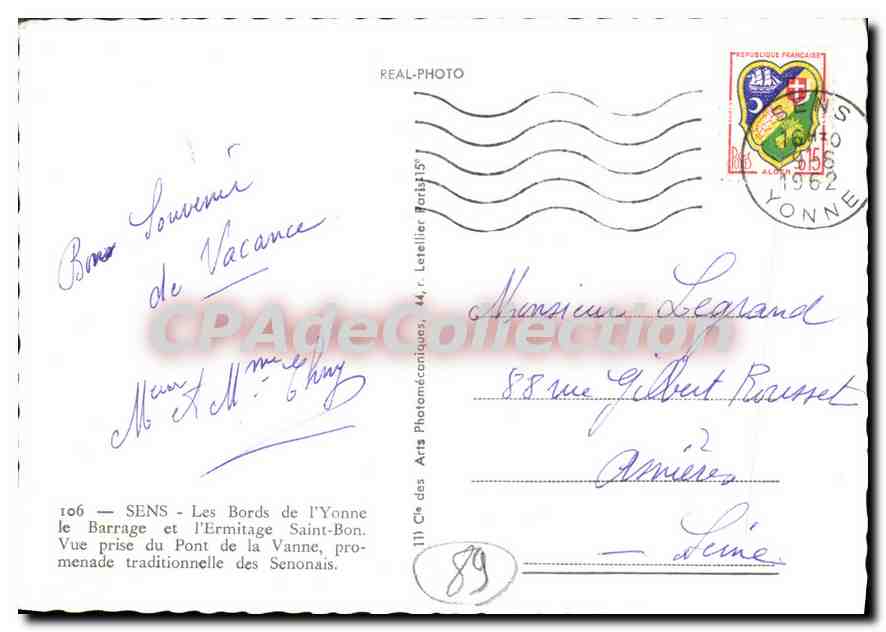 REAL-PHOTO
REPUBLIQUE FRANÇAISE
ALGER
SENS
1962
YONNE
Bons Souvenir
de Vacance
Meur et Mme
Monsieur Legrand
88 rue Gilbert Rousset
Asnières
Seine
106 — SENS - Les Bords de l'Yonne
le Barrage et l'Ermitage Saint-Bon.
Vue prise du Pont de la Vanne, pro-
menade traditionnelle des Senonais.
Cie des Arts Photomécaniques, 44, r. Letellier Paris-15e
89
CPAdeCollection